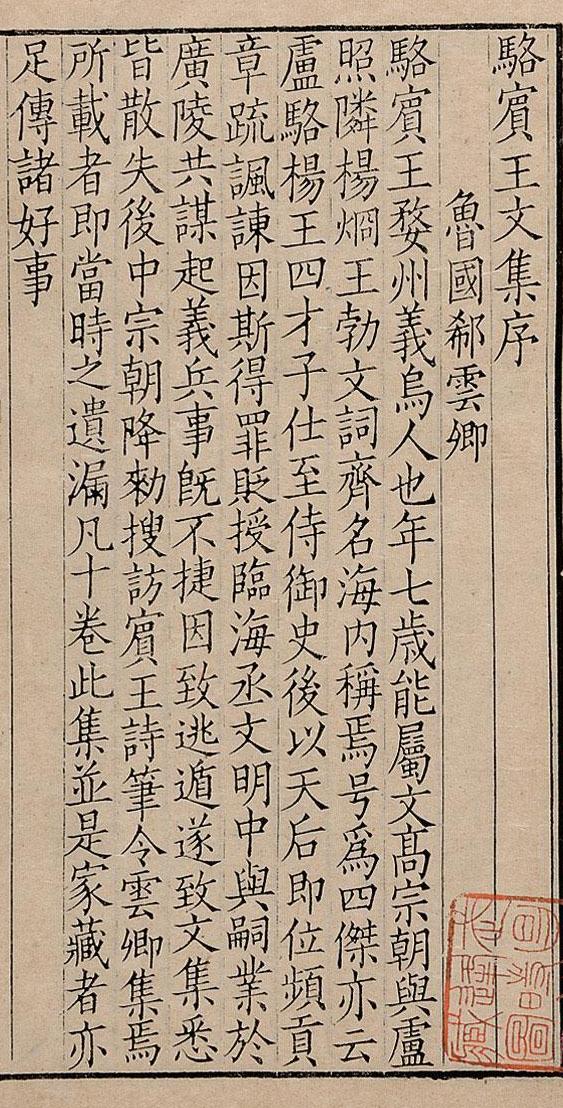 駱賓王文集序
魯國郗雲卿
駱賓王婺州義烏人也年七歲能屬文高宗朝與盧
照隣楊烱王勃文詞齊名海內稱焉号爲四傑亦云
盧駱楊王四才子仕至侍御史後以天后即位頻貢
章疏諷諫因斯得罪貶授臨海丞文明中與嗣業於
廣陵共謀起義兵事旣不捷因致逃遁遂致文集悉
皆散失後中宗朝降勑搜訪賓王詩筆令雲卿集焉
所載者即當時之遺漏凡十卷此集並是家藏者亦
足傳諸好事